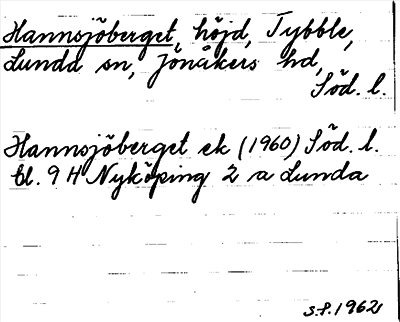 Hannsjöberget, höjd, Tybble,
Lunda sn, Jönåkers hd,
Söd. l.
Hannsjöberget ek (1960) Söd. l.
bl. 9 H Nyköping 2 a Lunda
S.P. 1962